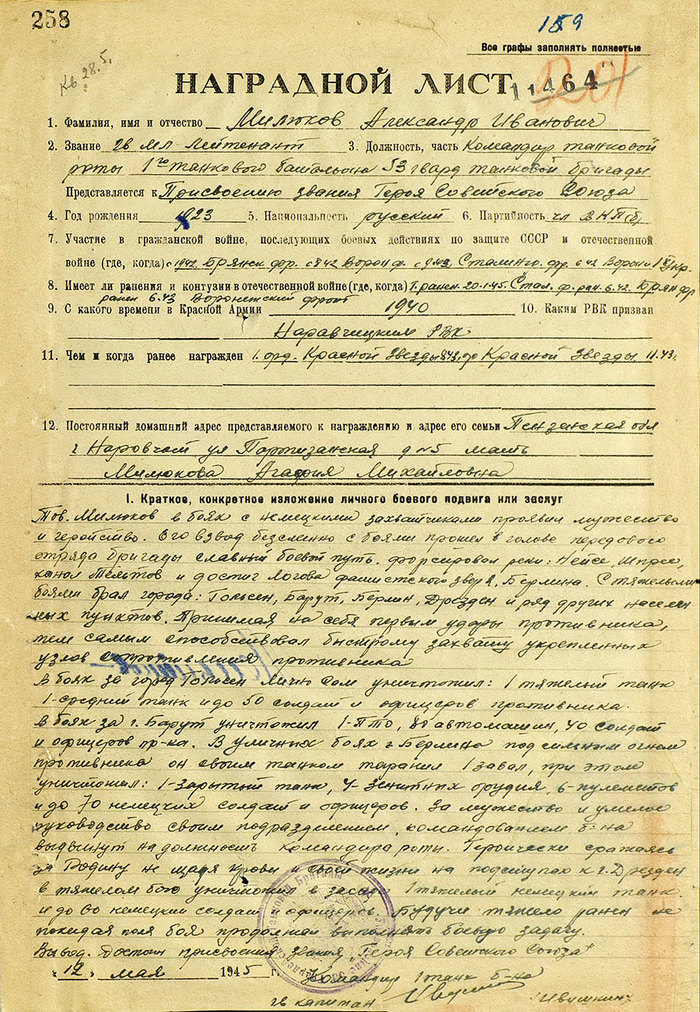 258
159
Все графы заполнять полностью
Кв 28.5.
НАГРАДНОЙ ЛИСТ 11464
1. Фамилия, имя и отчество Милюков Александр Иванович
2. Звание Гв мл лейтенант 3. Должность, часть Командир танковой
роты 1го танкового батальона 53 гвард танковой бригады
Представляется к Присвоению звания Героя Советского Союза
4. Год рождения 1923 5. Национальность русский 6. Партийность чл ВКП(б)
7. Участие в гражданской войне, последующих боевых действиях по защите СССР и отечественной
войне (где, когда) с 1942 Брянск фр. Ворон ф. Сталингр. фр.
8. Имеет ли ранения и контузии в отечественной войне (где, когда)
ранен 6.43 Воронежский фронт
9. С какого времени в Красной Армии 1940 10. Каким РВК призван
Наравчицким РВК
11. Чем и когда ранее награжден 1. орд. Красной Звезды Красной Звезды 11.43г
12. Постоянный домашний адрес представляемого к награждению и адрес его семьи Пензенская обл
г Наровчат ул Партизанская д №5 мать
Милюкова Агафия Михайловна
I. Краткое, конкретное изложение личного боевого подвига или заслуг
Тов. Милюков в боях с немецкими захватчиками проявил мужество
и геройство. Его взвод бессменно с боями прошел в голове передового
отряда бригады славный боевой путь, форсировал реки: Нейсе, Шпрее,
канал Тельтов и достиг логова фашистского зверя, Берлина. С тяжелыми
боями брал города: Гольсен, Барут, Берлин, Дрезден и ряд других населен
ных пунктов. Принимая на себя первым удары противника,
тем самым способствовал быстрому захвату укрепленных
узлов сопротивления противника
В боях за город лично сам уничтожил: 1 тяжелый танк
1-средний танк и до 50 солдат и офицеров противника.
В боях за г. Барут уничтожил 1-ПТО, 80 автомашин, 40 солдат
и офицеров пр-ка. В уличных боях г. Берлина под сильным огнем
противника он своим танком таранил 1 завал, при этом
уничтожил: 1-зарытый танк, 4-зенитных орудия, 6-пулеметов
и до 70 немецких солдат и офицеров. За мужество и умелое
руководство своим подразделением, командованием б-на
выдвинут на должность командира роты. Героически сражаясь
за Родину не щадя крови и своей жизни на подступах к г. Дрезден
в тяжелом бою уничтожил в засаде 1 тяжелый немецкий танк
и до немецких солдат и офицеров. Будучи тяжело ранен не
покидая поля боя продолжал выполнять боевую задачу.
Вывод. Достоин присвоения звания „Героя Советского Союза"
„12" мая 1945 г. Командир 1 танк б-на
гв капитан Ивушкин